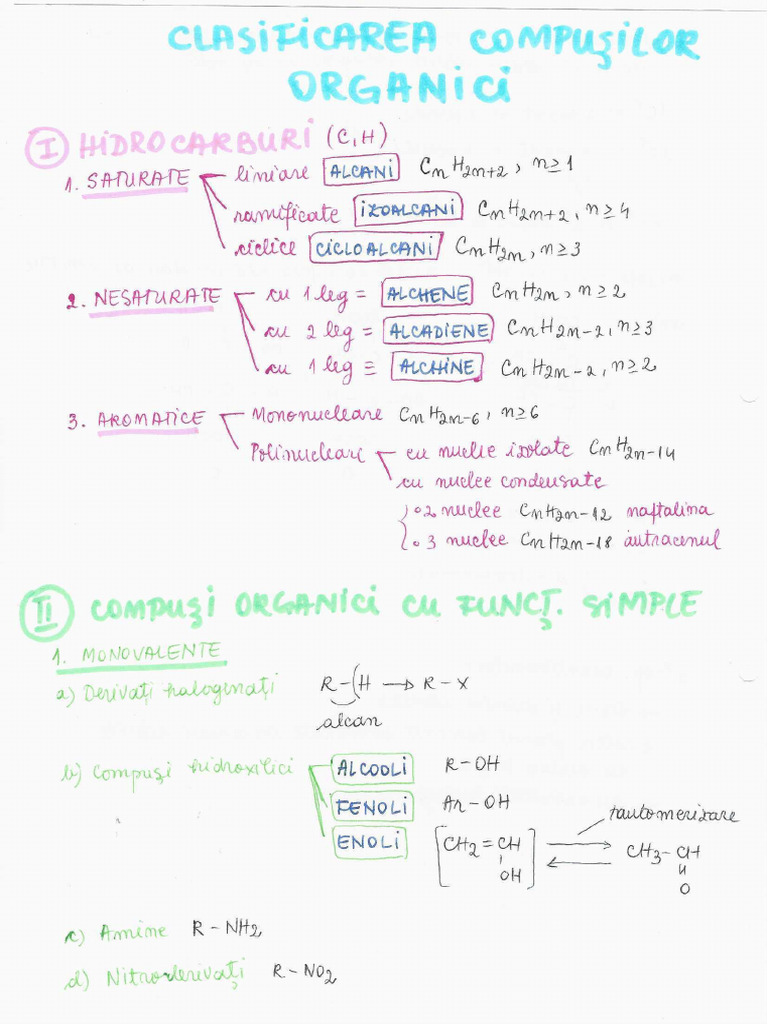 CLASIFICAREA COMPUȘILOR
ORGANICI
I HIDROCARBURI (C,H)
1. SATURATE
liniare ALCANI CnH2n+2, n≥1
ramificate IZOALCANI CnH2n+2, n≥4
ciclice CICLOALCANI CnH2n, n≥3
2. NESATURATE
cu 1 leg = ALCHENE CnH2n, n≥2
cu 2 leg = ALCADIENE CnH2n-2, n≥3
cu 1 leg ≡ ALCHINE CnH2n-2, n≥2
3. AROMATICE
Mononucleare CnH2n-6, n≥6
Polinucleare
cu nuclee izolate CnH2n-14
cu nuclee condensate
2 nuclee CnH2n-12 naftalina
3 nuclee CnH2n-18 antracenul
II COMPUȘI ORGANICI CU FUNCȚ. SIMPLE
1. MONOVALENTE
a) Derivați halogenați R-(H → R-X
alcan
b) Compuși hidroxilici
ALCOOLI R-OH
FENOLI Ar-OH
tautomerizare
ENOLI [CH2=CH ⇌ CH3-CH
OH] O
c) Amine R-NH2
d) Nitroderivați R-NO2